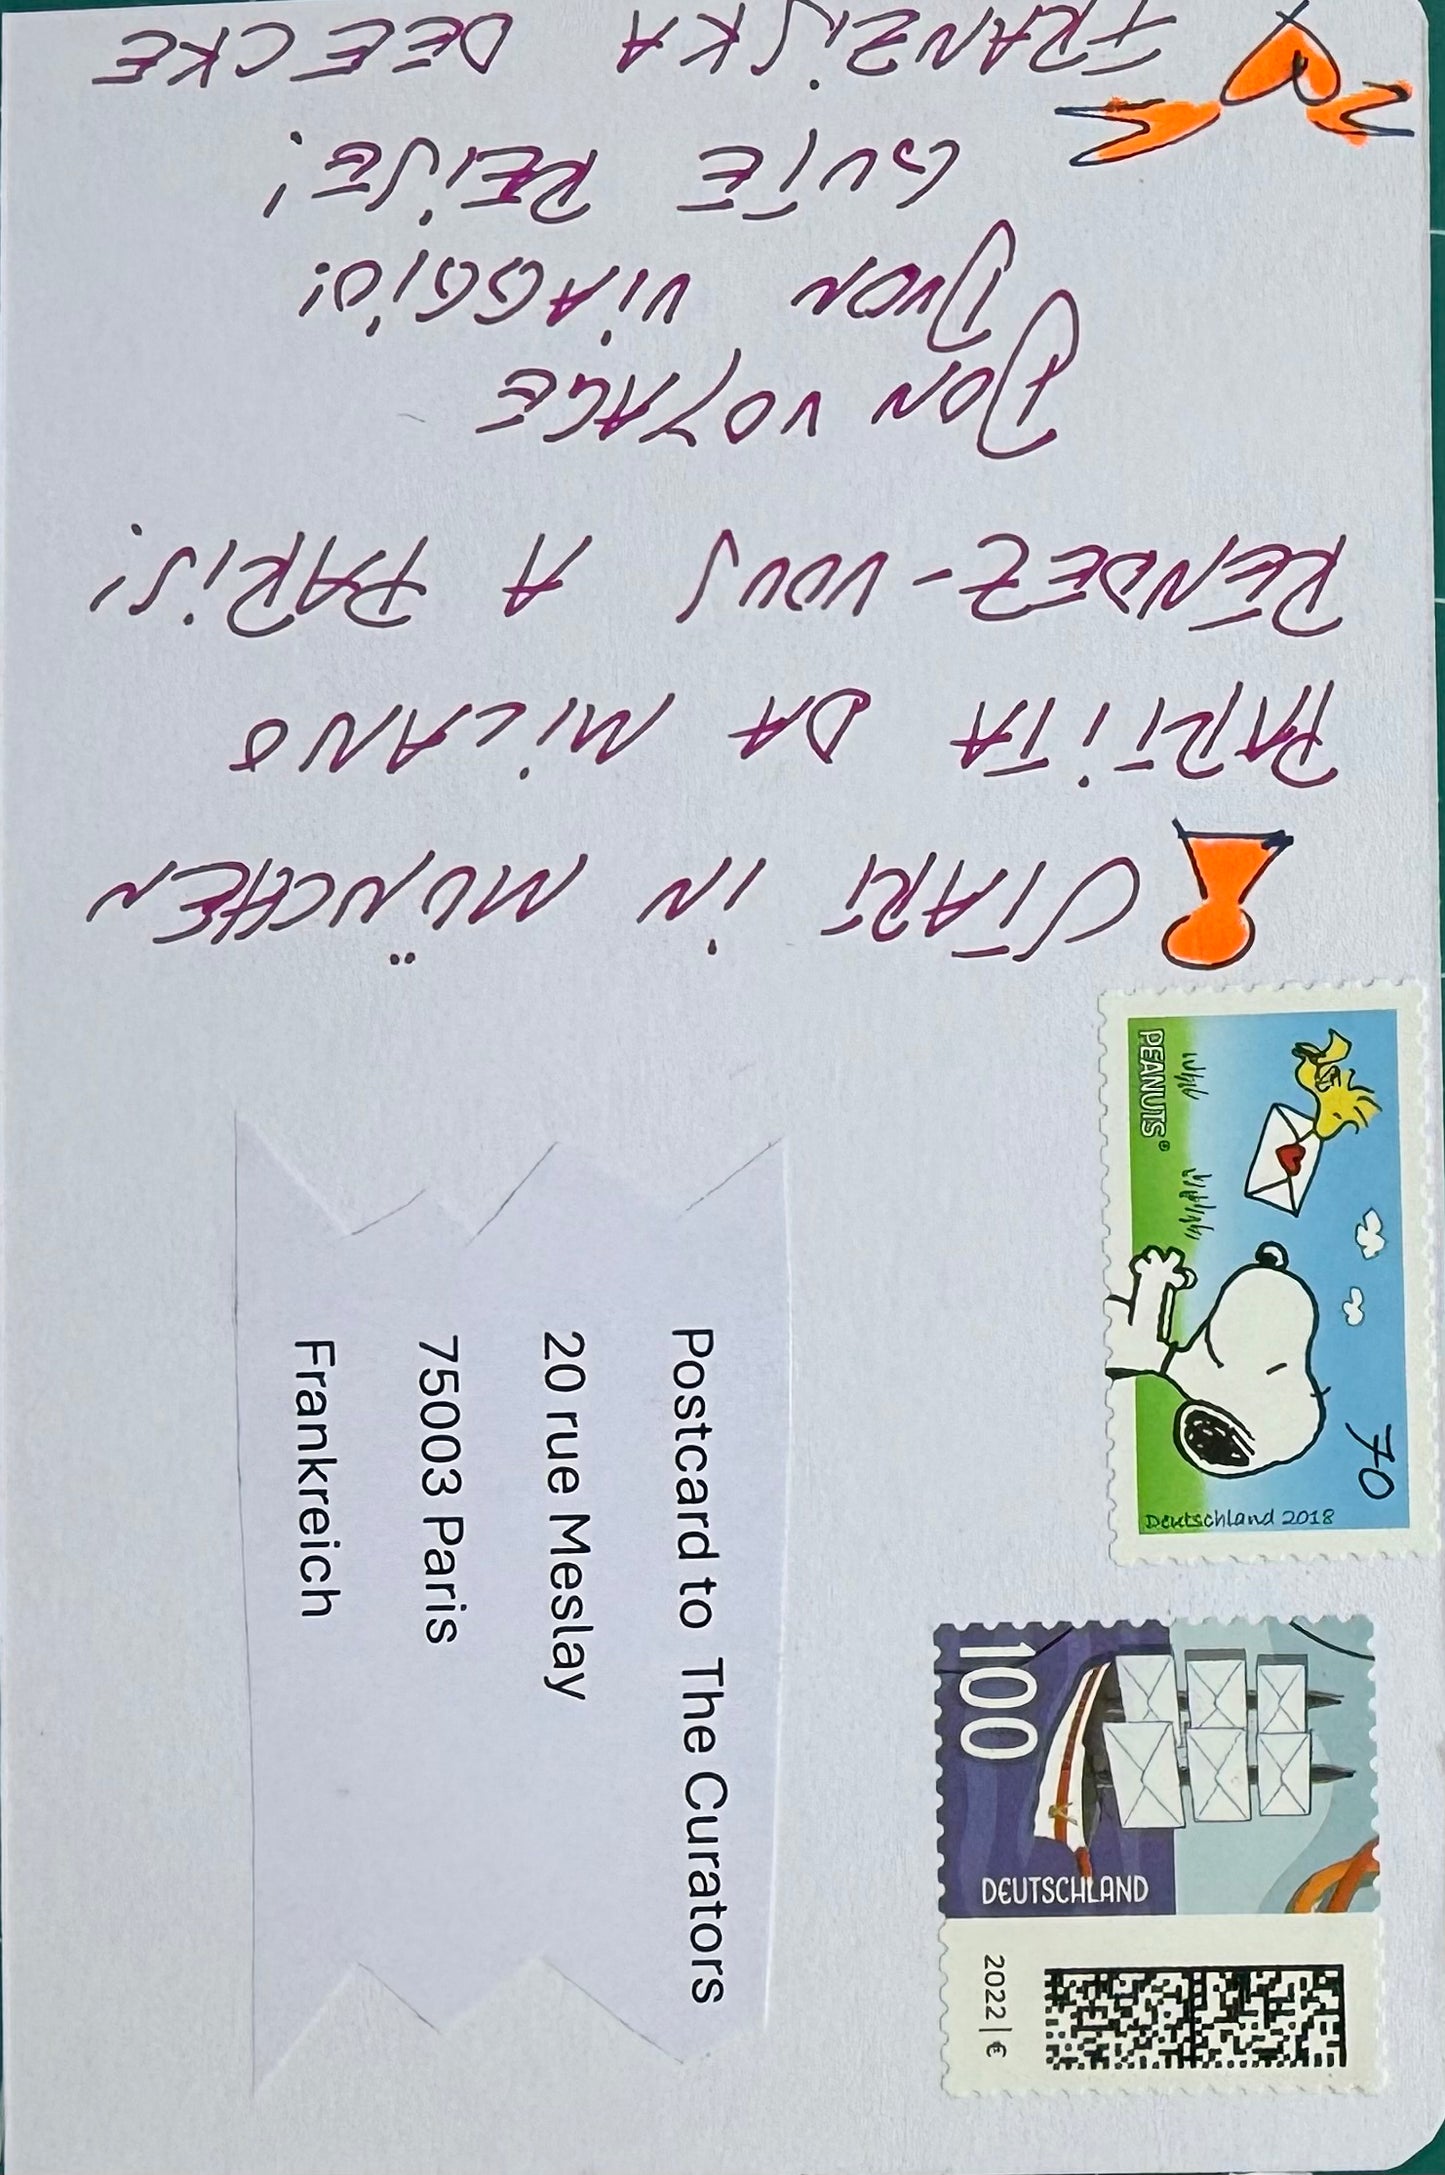 START IN MÜNCHEN
PARTITA DA MILANO
RENDEZ-VOUS A PARIS!
BON VOYAGE
BUON VIAGGIO!
GUTE REISE!
FRANZISKA DEECKE
PEANUTS®
70
Deutschland 2018
100
DEUTSCHLAND
2022 | €
Postcard to The Curators
20 rue Meslay
75003 Paris
Frankreich